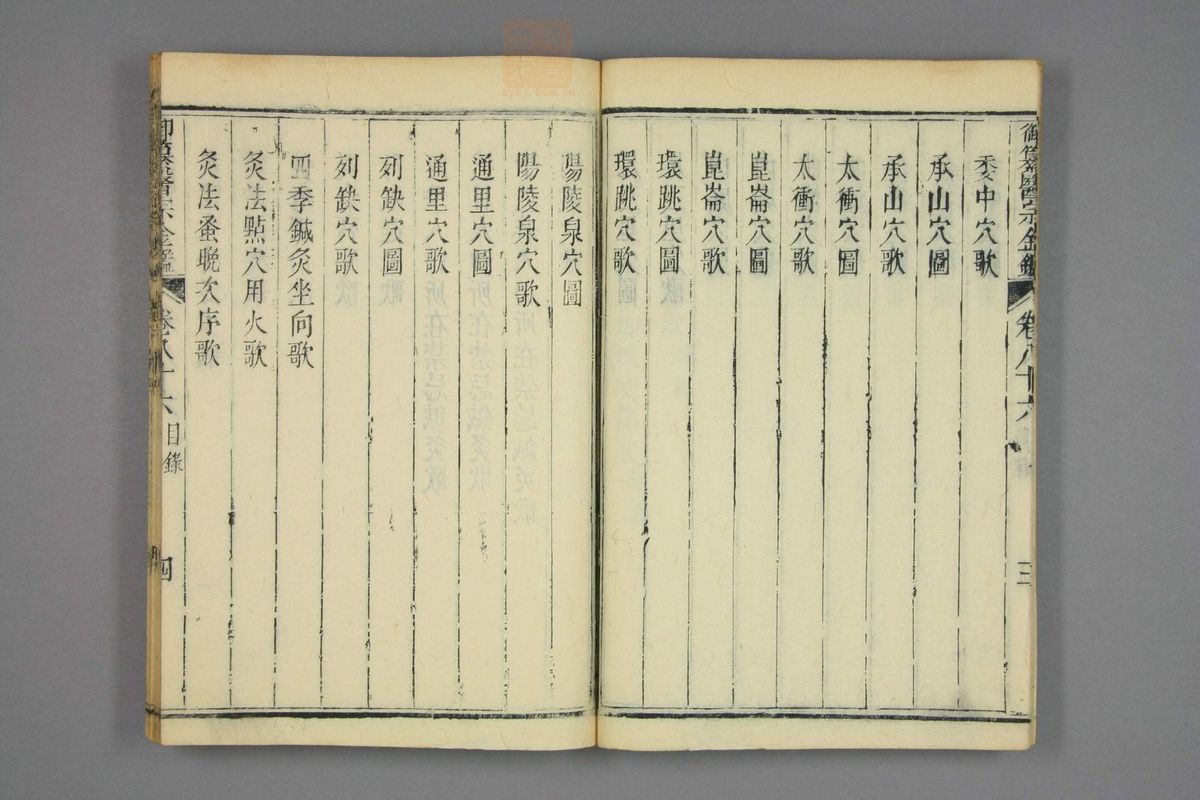 御纂醫宗金鑑 卷八十六 三
委中穴歌
承山穴圖
承山穴歌
太衝穴圖
太衝穴歌
崑崙穴圖
崑崙穴歌
環跳穴圖
環跳穴歌
陽陵泉穴圖
陽陵泉穴歌
通里穴圖
通里穴歌
列缺穴圖
列缺穴歌
四季鍼灸坐向歌
灸法點穴用火歌
灸法蚤晚次序歌
御纂醫宗金鑑 卷八十六 目錄 四
zysj.com.cn